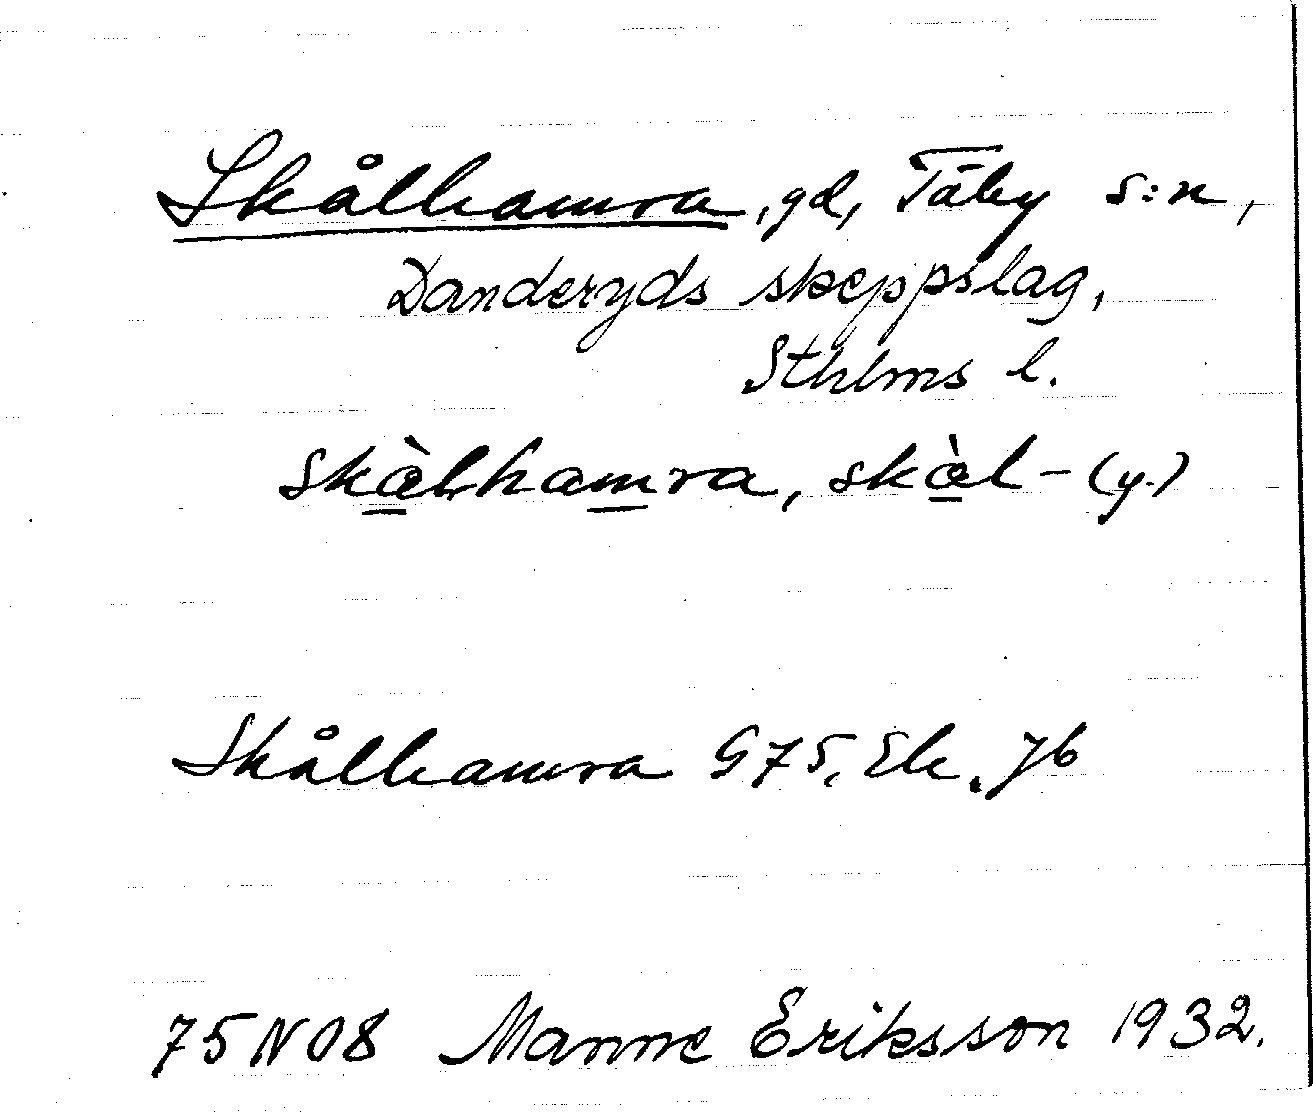 Skålhamra, gd, Täby s:n,
Danderyds skeppslag,
Sthlms l.
skàlhamra, skàl- (y.)
Skålhamra G75, Ek. Jb
75 NO8 Manne Eriksson 1932.